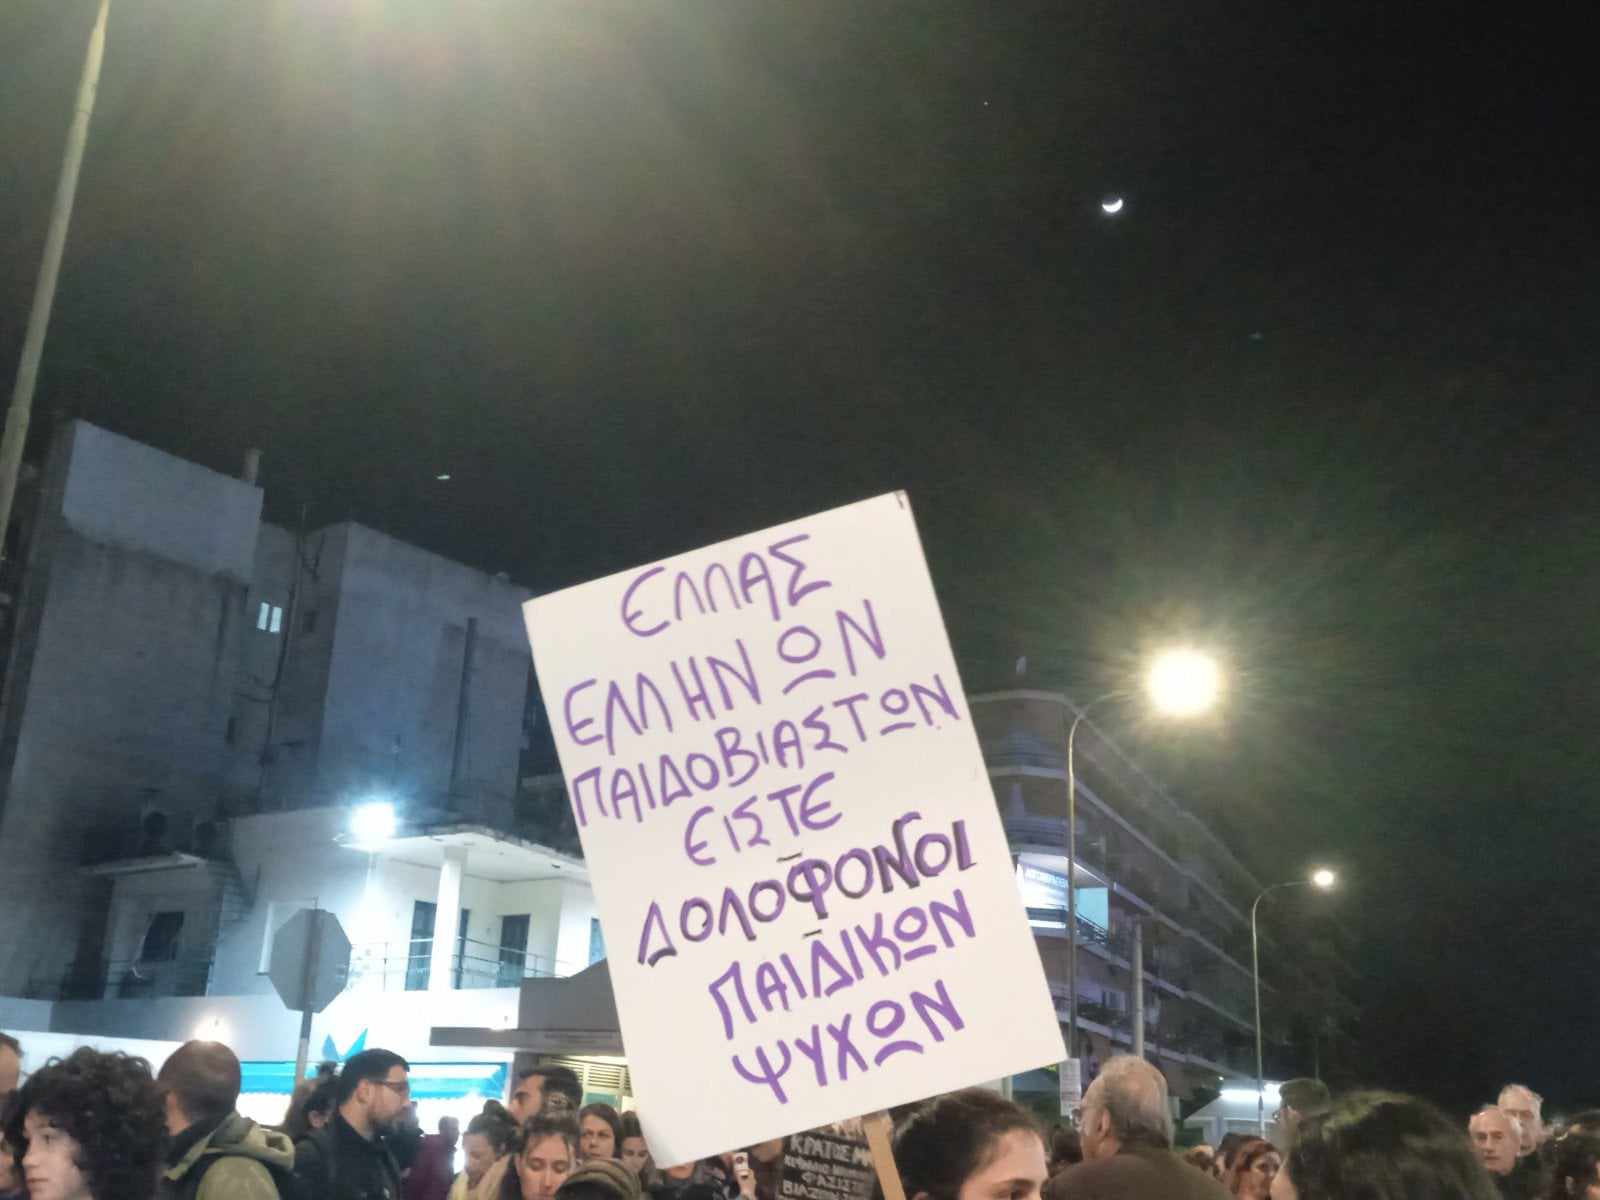 ΕΛΛΑΣ
ΕΛΛΗΝΩΝ
ΠΑΙΔΟΒΙΑΣΤΩΝ
ΕΙΣΤΕ
ΔΟΛΟΦΟΝΟΙ
ΠΑΙΔΙΚΩΝ
ΨΥΧΩΝ
ΚΡΑΤΟΣ